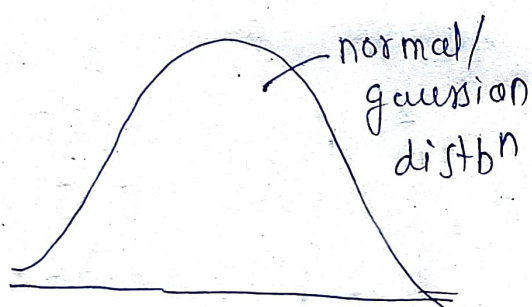 normal/
gaussian
distbⁿ